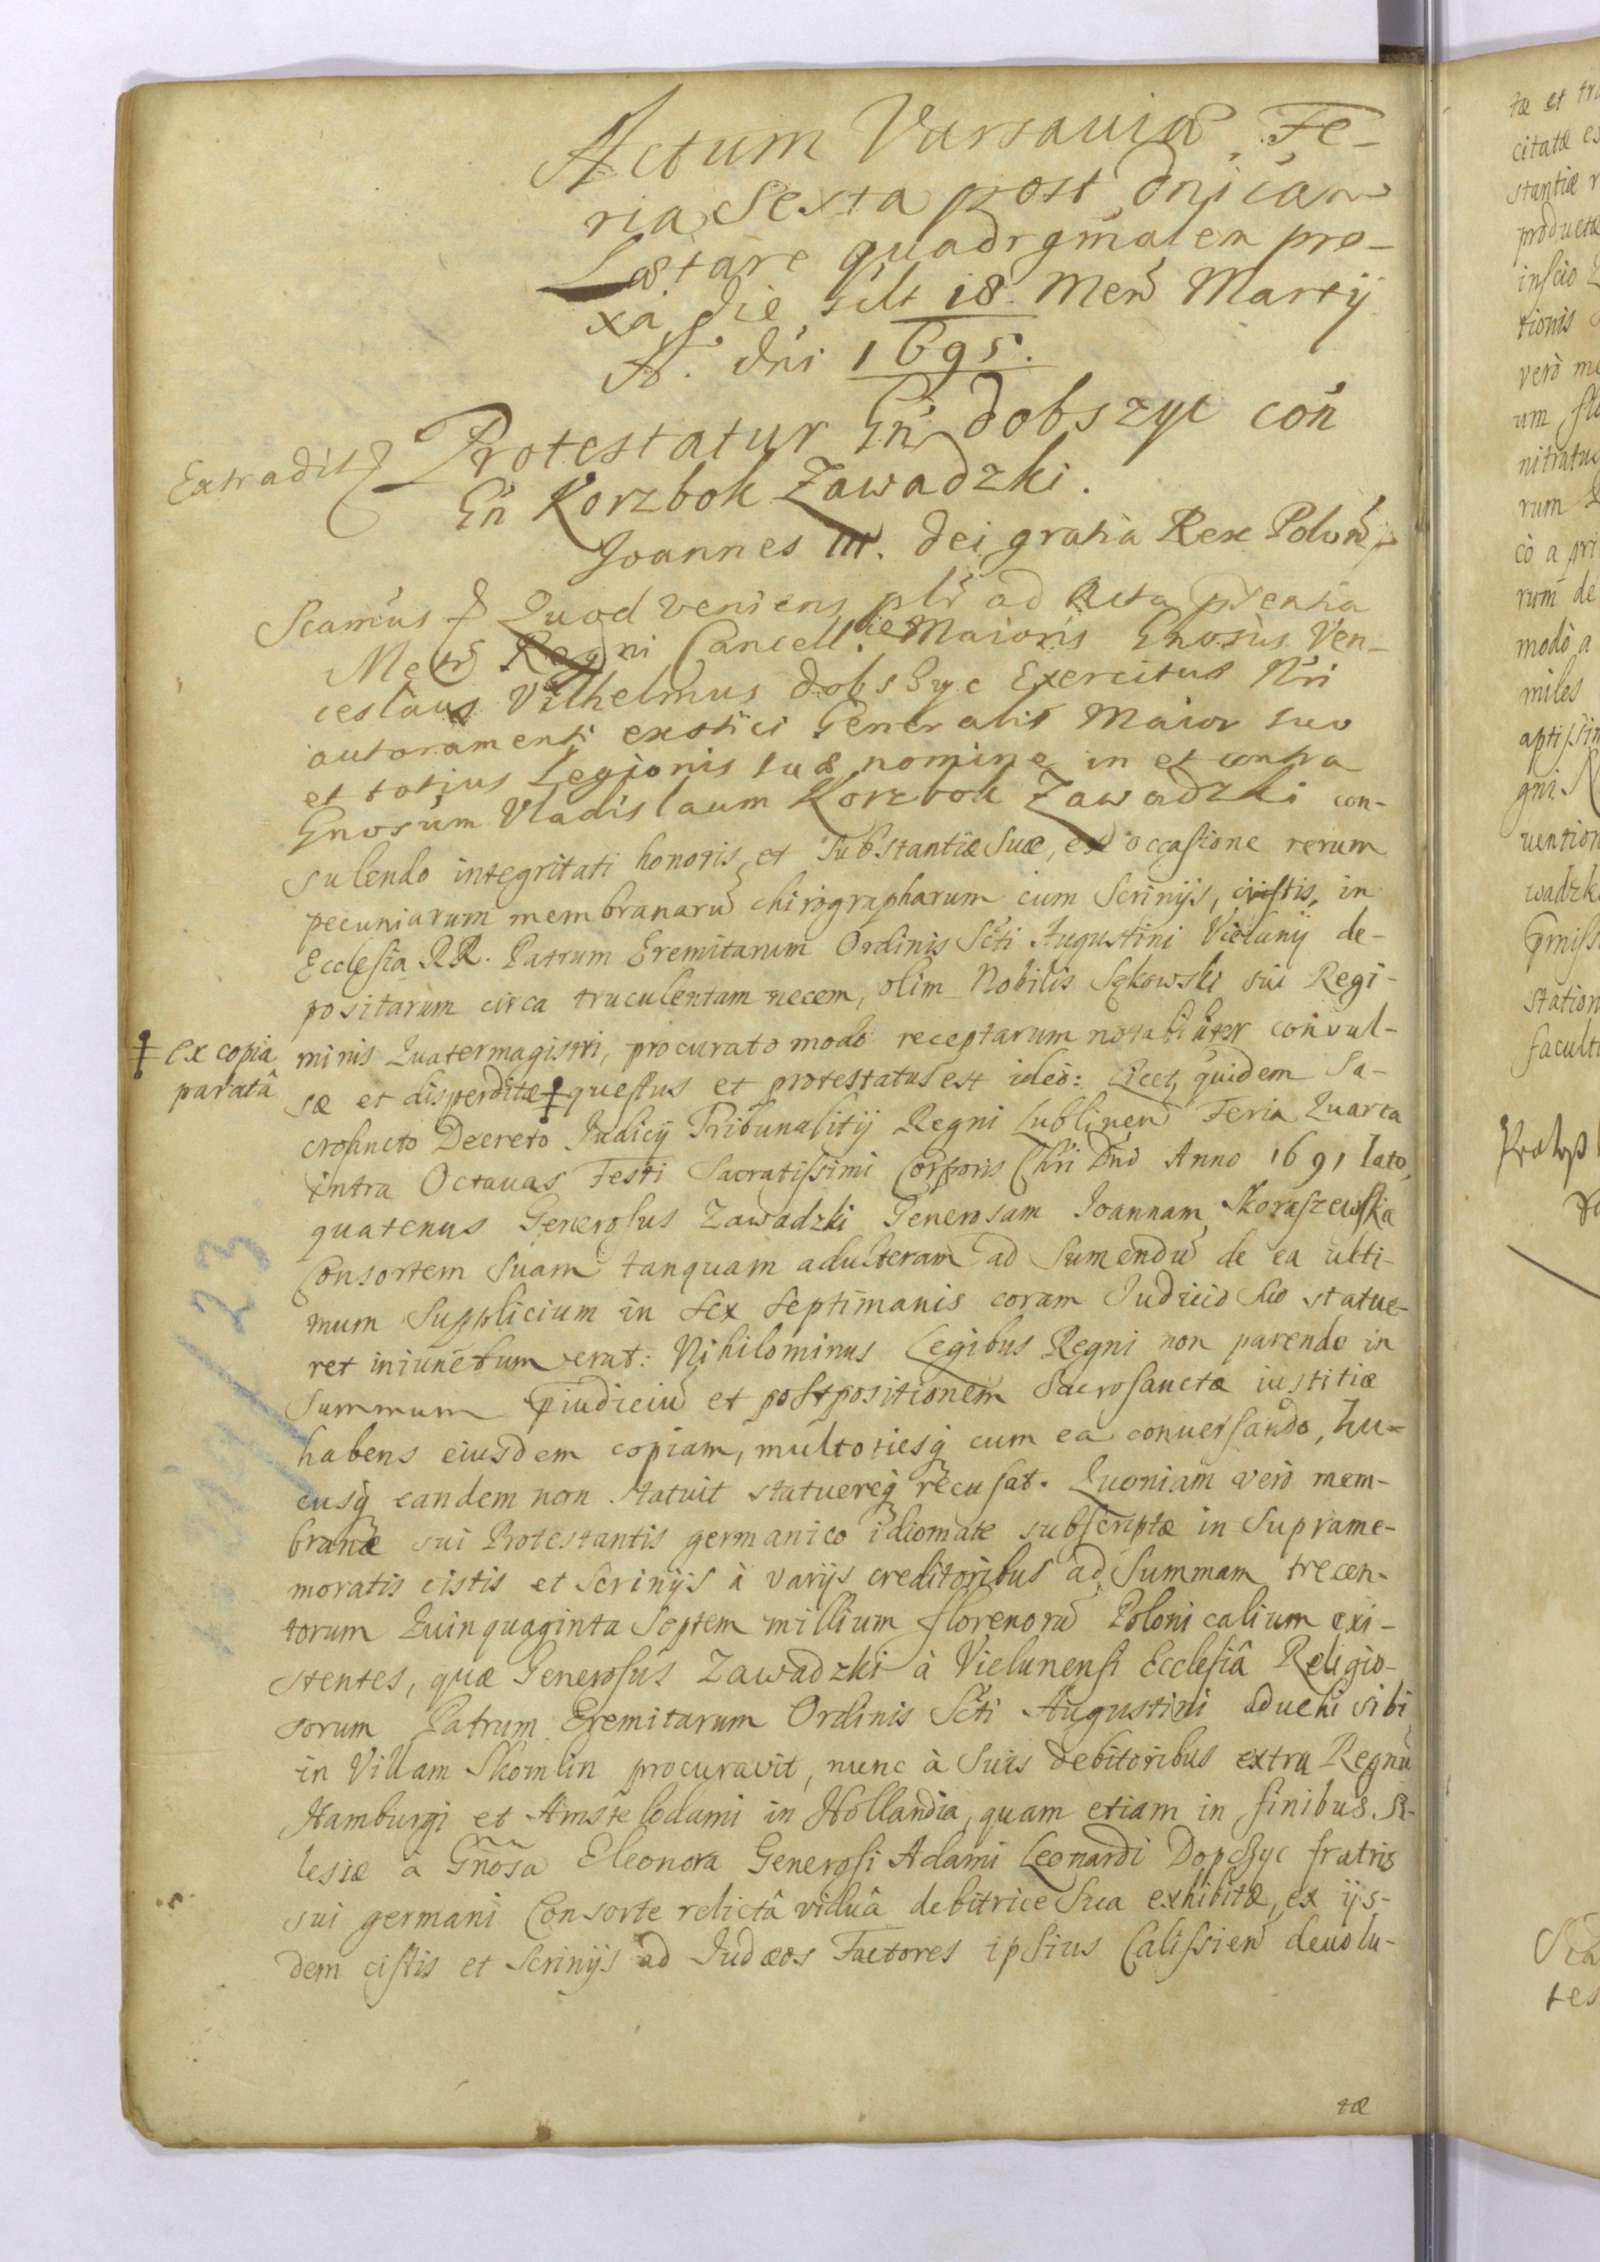 Actum Varsaviæ Fe-
ria Sexta post dnicam
Lætare quadrgmalem pro-
xa die scilt 18. Mens Martij
A. dni 1695.
Extradit
Protestatur Gn Dobszyc con
Gn Korzbok Zawadzki.
Joannes III. Dei gratia Rex Polon
Quod veniens plr ad Acta psentia
Metr Regni Cancell. Maioris Gnosus Ven-
ceslaus Vilhelmus Dobszyc Exercitus Nri
autoramenti exotici Generalis Maior suo
et totius Legionis suæ nomine in et contra
Gnosum Vladislaum Korzbok Zawadzki con-
sulendo integritati honoris et Substantiæ Suæ, ex occasione rerum
pecuniarum membranaru chirographarum cum Scrinijs, cistis, in
Ecclesia RR. Patrum Eremitarum Ordinis Scti Augustini Vieluny de-
positarum circa truculentam necem, olim Nobilis Sękowski sui Regi-
minis Quatermagistri, procurato modo receptarum notabiliter convul-
‡ ex copia
parata
sæ et disperditæ ‡ questus et protestatus est ideo: Licet quidem Sa-
crosancto Decreto Judicij Tribunalitij Regni Lublinen Feria Quarta
intra Octavas Festi Sacratissimi Corporis Chri Dni Anno 1691 lato,
quatenus Generosus Zawadzki Generosam Joannam Skoraszewska
Consortem Suam tanquam adulteram ad Sumendu de ea ulti-
mum Supplicium in Sex Septimanis coram Judicio Suo statue-
ret iniunctum erat: Nihilominus Legibus Regni non parendo in
Summum piudiciu et postpositionem Sacrosanctæ iustitiæ
habens eiusdem copiam, multotiesq cum ea conversando, hu-
cusq eandem non statuit statuereq recusat. Quoniam vero mem-
branæ sui Protestantis germanico idiomate subscriptæ in Suprame-
moratis cistis et Scrinijs à varijs creditoribus ad Summam trecen-
torum Quinquaginta Septem millium florenoru Polonicalium exi-
stentes, quæ Generosus Zawadzki à Vielunensi Ecclesiâ Religio-
sorum Patrum Eremitarum Ordinis Scti Augustini advehi sibi
in Villam Skomlin procuravit, nunc à Suis debitoribus extra Regnu
Hamburgi et Amstelodami in Hollandia, quam etiam in finibus Si-
lesiæ à Gnosa Eleonora Generosi Adami Leonardi Dopchyc fratris
sui germani Consorte relictâ viduâ debitrice Sua exhibitæ, ex ijs-
dem cistis et Scrinijs ad Judæos Factores ipsius Calissien devolu-
tæ